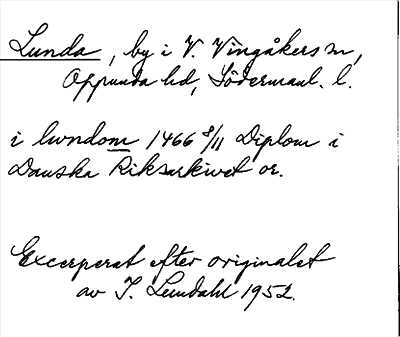 Lunda, by i V. Vingåkers sn,
Oppunda hd, Södermanl. l.
i lwndom 1466 8/11 Diplom i
Danska Riksarkivet or.
Excerperat efter originalet
av I. Lundahl 1952.